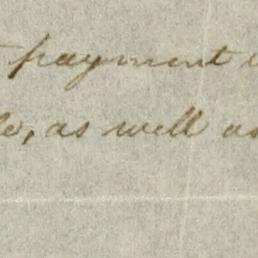 payment
as well as